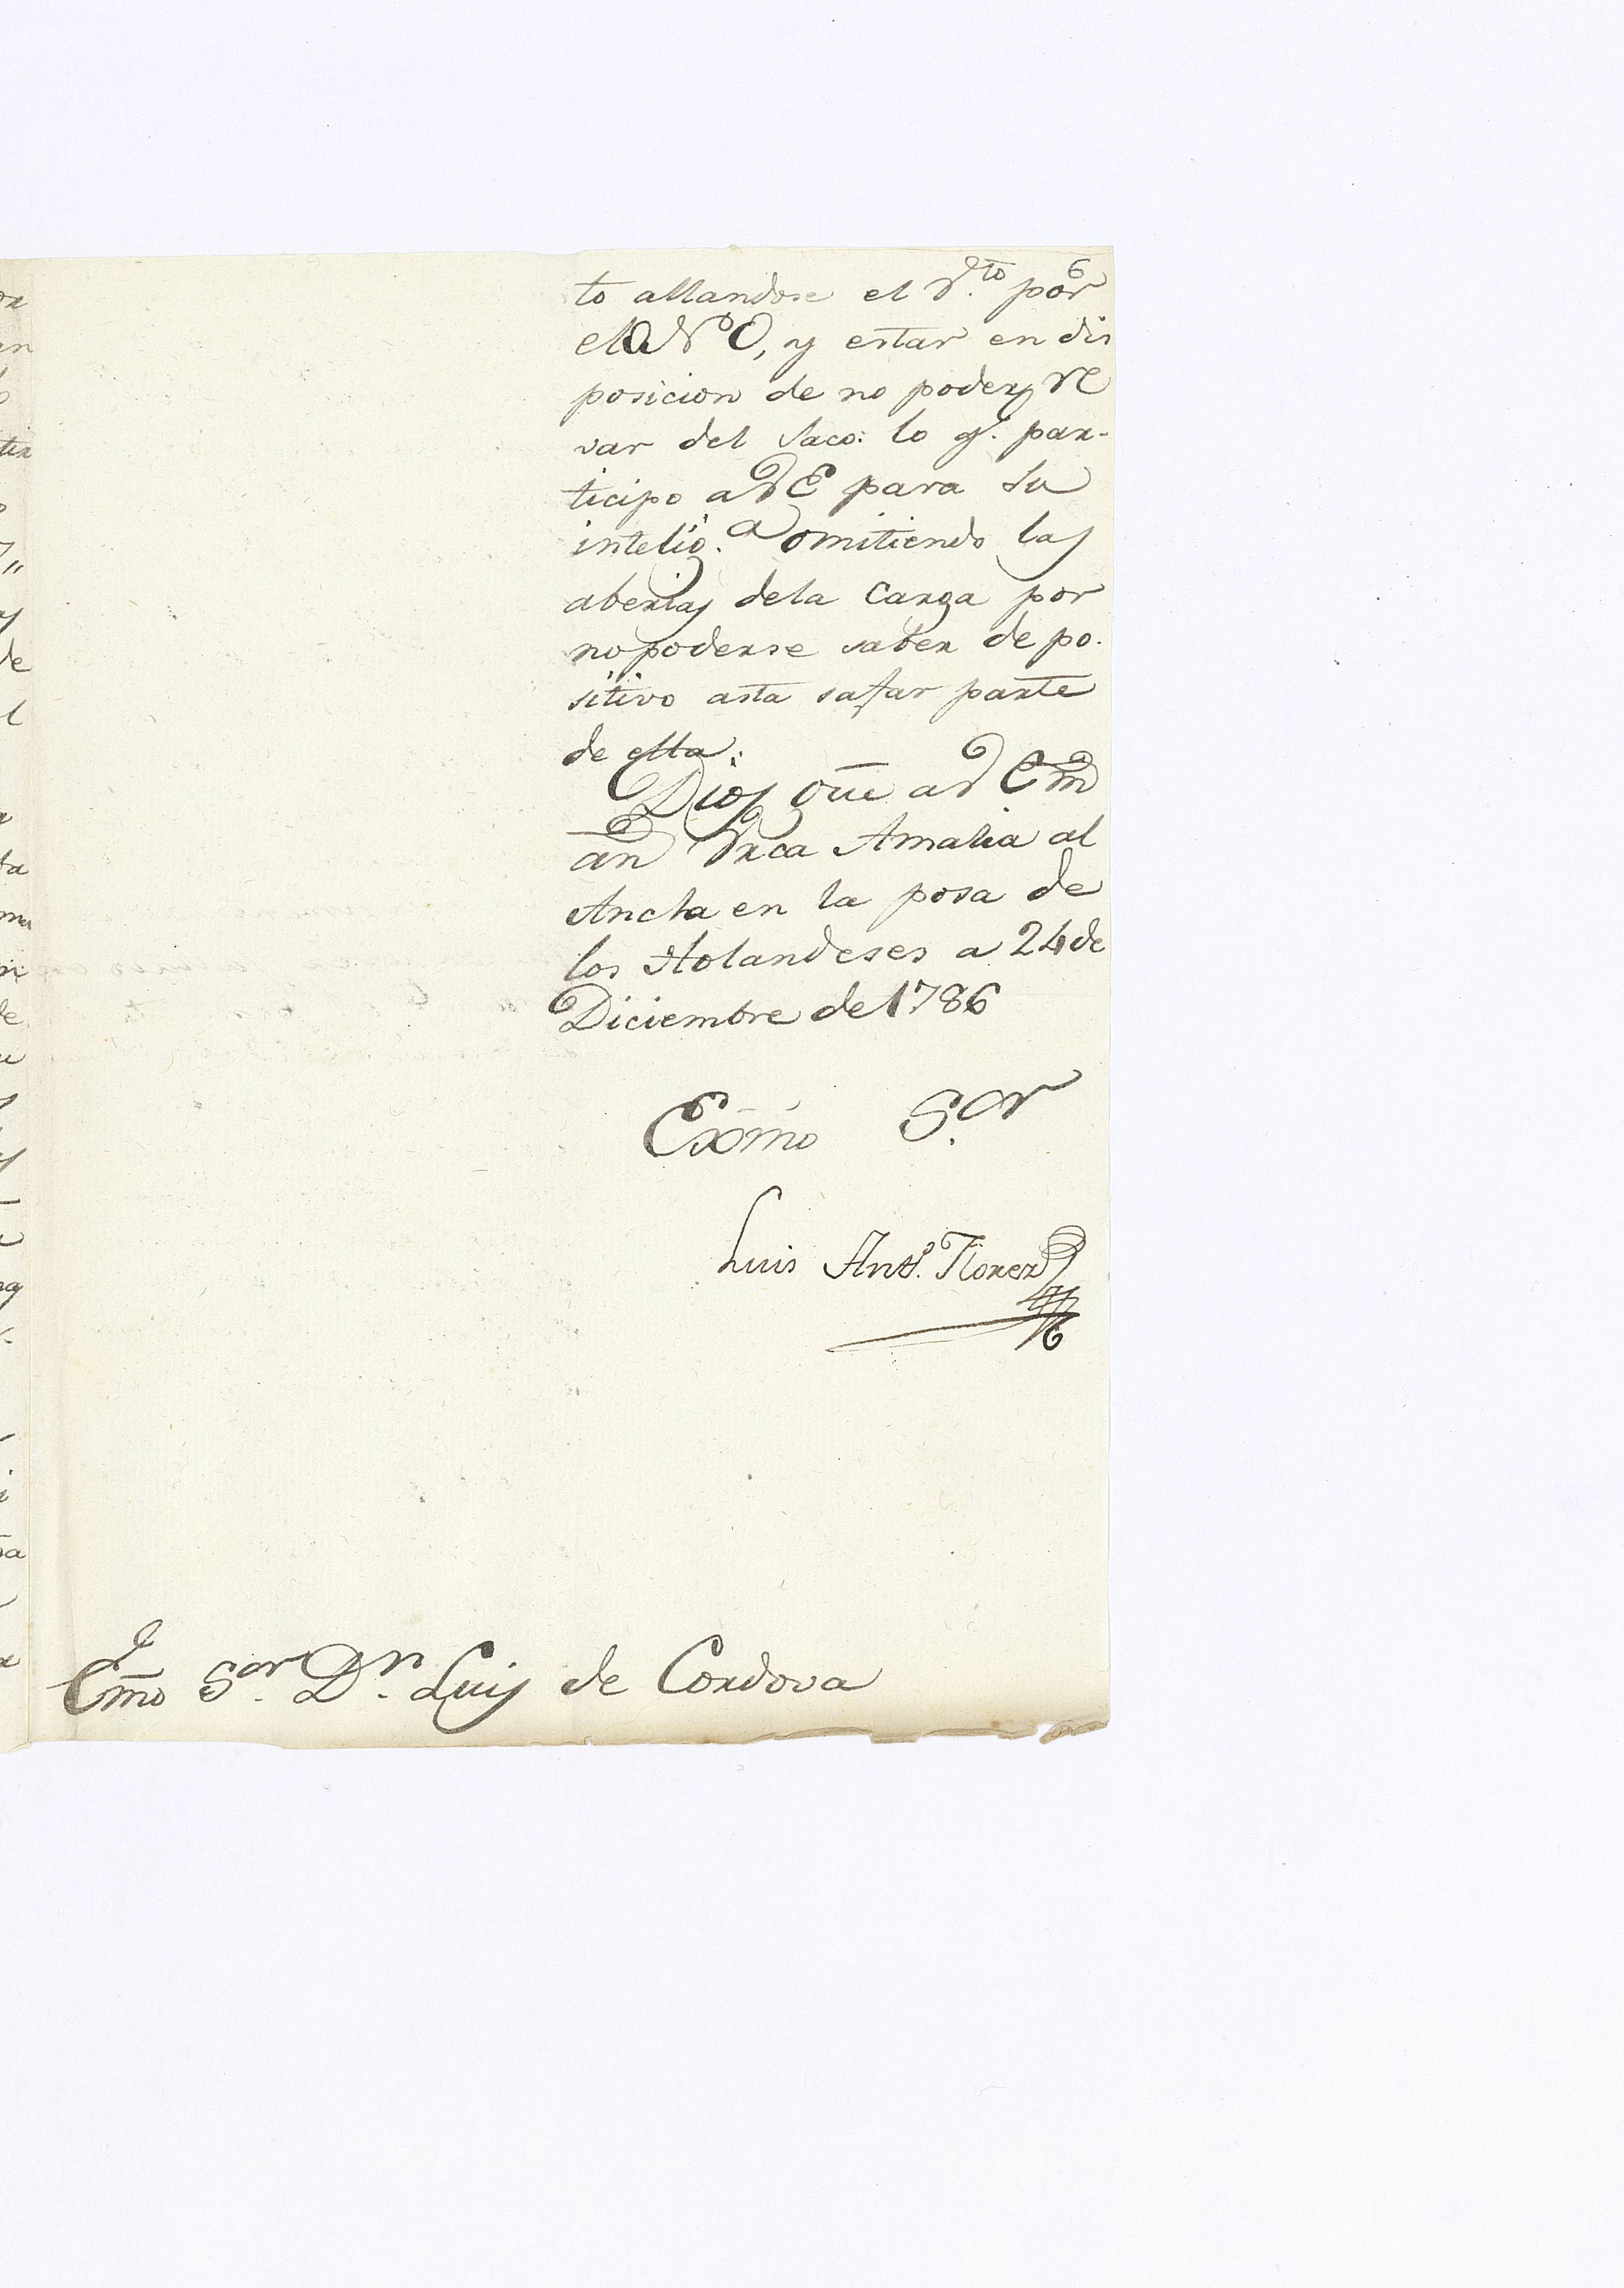 6
to allandose el V.to por
el O N O, y estar en dis
posicion de no poder
var del saco: lo q.e par-
ticipo a VE para su
intelig.a omitiendo las
aberias dela Carga por
no poderse saber de po.
sitivo asta safar parte
de ella:
Dios gūe a V Em̄
an Urca Amalia al
Ancla en la posa de
los Holandeses a 24 de
Diciembre de 1786
Exmo S.or
Luis Ant.o Florez
Emo S.or D.n Luis de Cordova